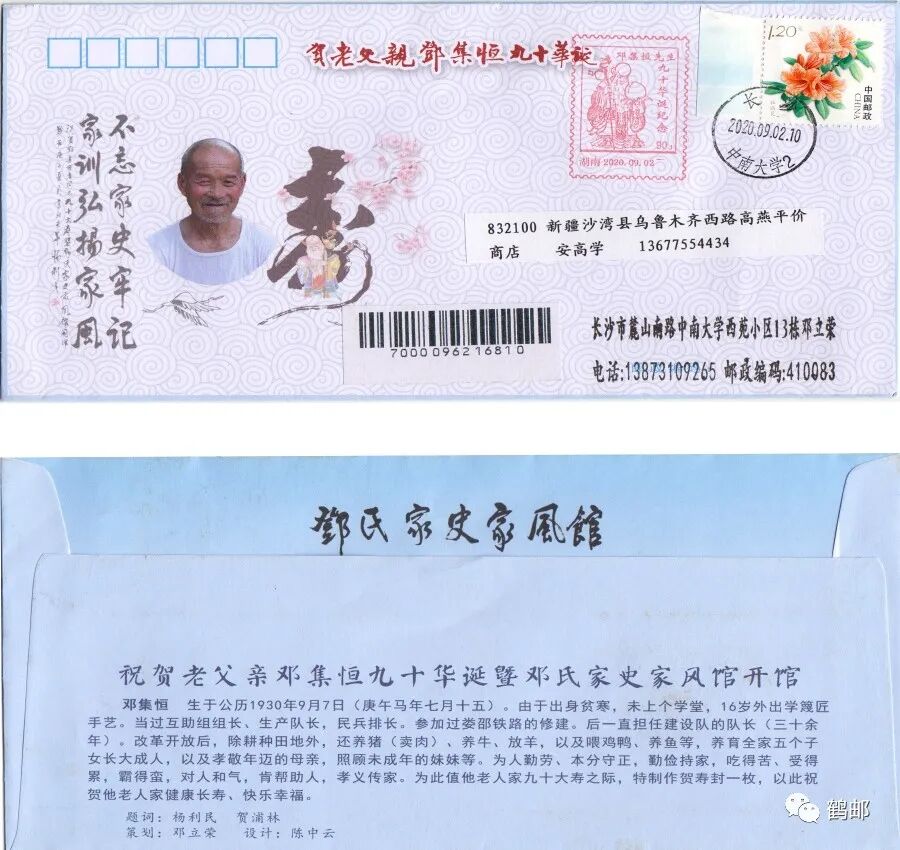 贺老父親鄧集恒九十華诞
1.20元
中国邮政
CHINA
邓集恒先生
九十华诞纪念
90.
湖南 2020.09.02
长
2020.09.02.10
中南大学2
不忘家史牢记
家训弘揚家風
寿
832100 新疆沙湾县乌鲁木齐西路高燕平价
商店 安高学 13677554434
7000096216810
长沙市麓山南路中南大学西苑小区13栋邓立荣
电话:13873109265 邮政编码:410083
鄧氏家史家風館
祝贺老父亲邓集恒九十华诞暨邓氏家史家风馆开馆
邓集恒 生于公历1930年9月7日（庚午马年七月十五）。由于出身贫寒，未上个学堂，16岁外出学篾匠
手艺。当过互助组组长、生产队长，民兵排长。参加过娄邵铁路的修建。后一直担任建设队的队长（三十余
年）。改革开放后，除耕种田地外，还养猪（卖肉）、养牛、放羊，以及喂鸡鸭、养鱼等，养育全家五个子
女长大成人，以及孝敬年迈的母亲，照顾未成年的妹妹等。为人勤劳、本分守正，勤俭持家，吃得苦、受得
累，霸得蛮，对人和气，肯帮助人，孝义传家。为此值他老人家九十大寿之际，特制作贺寿封一枚，以此祝
贺他老人家健康长寿、快乐幸福。
题词：杨利民 贺浦林
策划：邓立荣 设计：陈中云
鹤邮